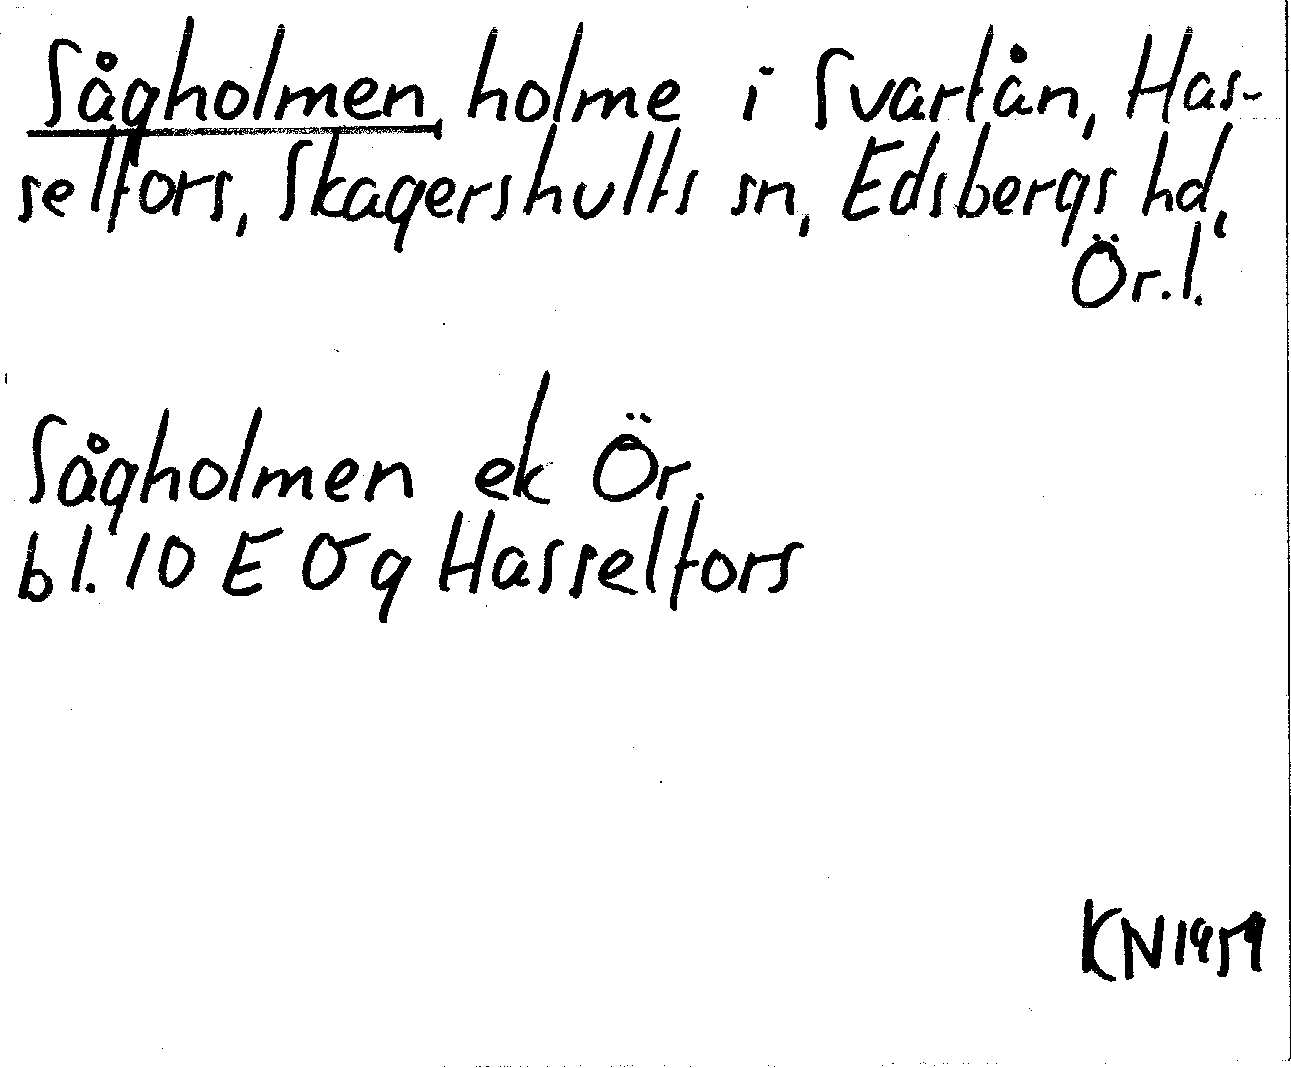 Sågholmen, holme i Svartån, Has-
selfors, Skagershults sn, Edsbergs hd,
Ör.l.
Sågholmen ek Ör.
bl. 10 E Og Hasselfors
KN 1959